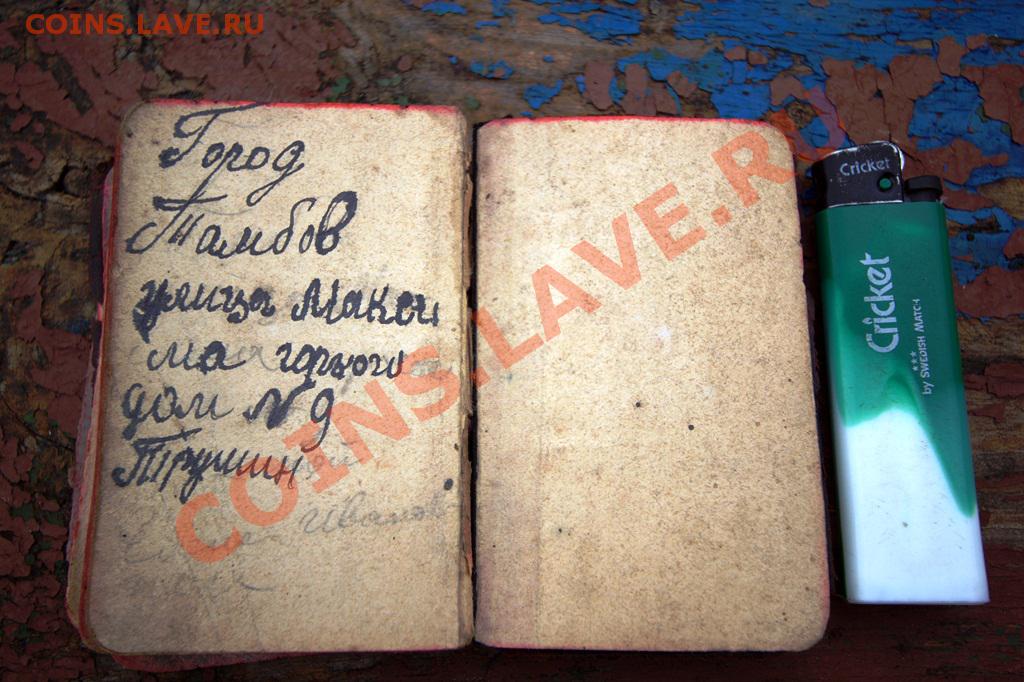 COINS.LAVE.RU
Город
Тамбов
улица Макси
ма горього
дом N 9
Трушин
Иванов
COINS.LAVE.RU
Cricket
Cricket
by SWEDISH MATCH